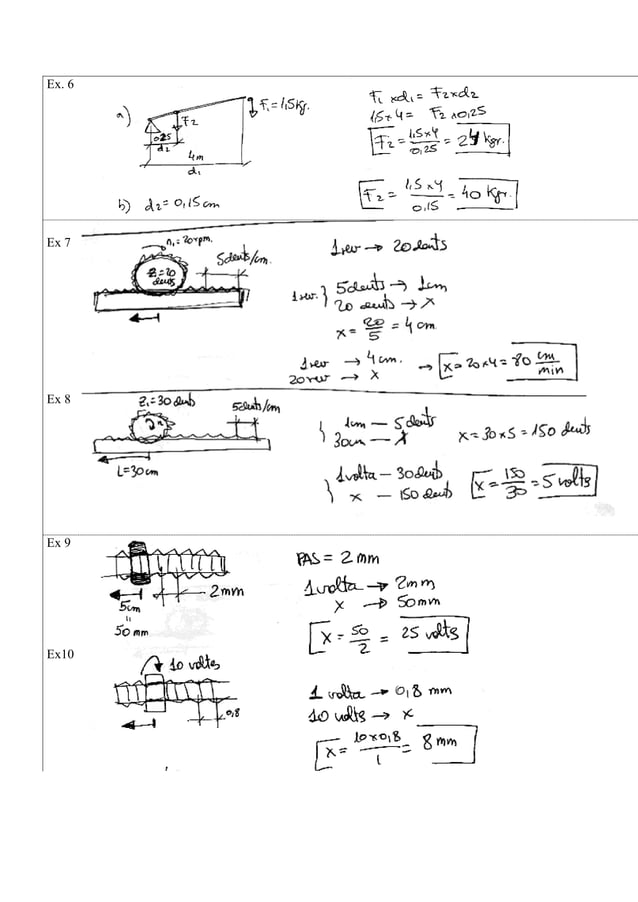 Ex. 6
a)
F₁=1,5Kg.
F₂
0.25
d₂
4m
d₁
F₁ x d₁ = F₂ x d₂
1,5 x 4 = F₂ x 0,25
F₂ = 1,5x4 / 0,25 = 24 kgr.
b) d₂ = 0,15 cm
F₂ = 1,5 x 4 / 0,15 = 40 Kgr.
Ex 7
n₁ = 20 rpm.
5 dents/cm.
Z₁ = 20 dents
1 rev → 20 dents
1 rev. } 5 dents → 1 cm
20 dents → x
x = 20 / 5 = 4 cm
1 rev → 4 cm.
20 rev → x
→ x = 20 x 4 = 80 cm / min
Ex 8
Z₁ = 30 dents
5 dents/cm
L = 30 cm
1cm — 5 dents
30cm — X
x = 30 x 5 = 150 dents
1 volta — 30 dents
x — 150 dents
x = 150 / 30 = 5 volts
Ex 9
2mm
5cm
=
50 mm
PAS = 2 mm
1 volta → 2mm
x → 50mm
x = 50 / 2 = 25 volts
Ex10
10 voltes
0,8
1 volta → 0,8 mm
10 volts → x
x = 10x0,8 / 1 = 8 mm